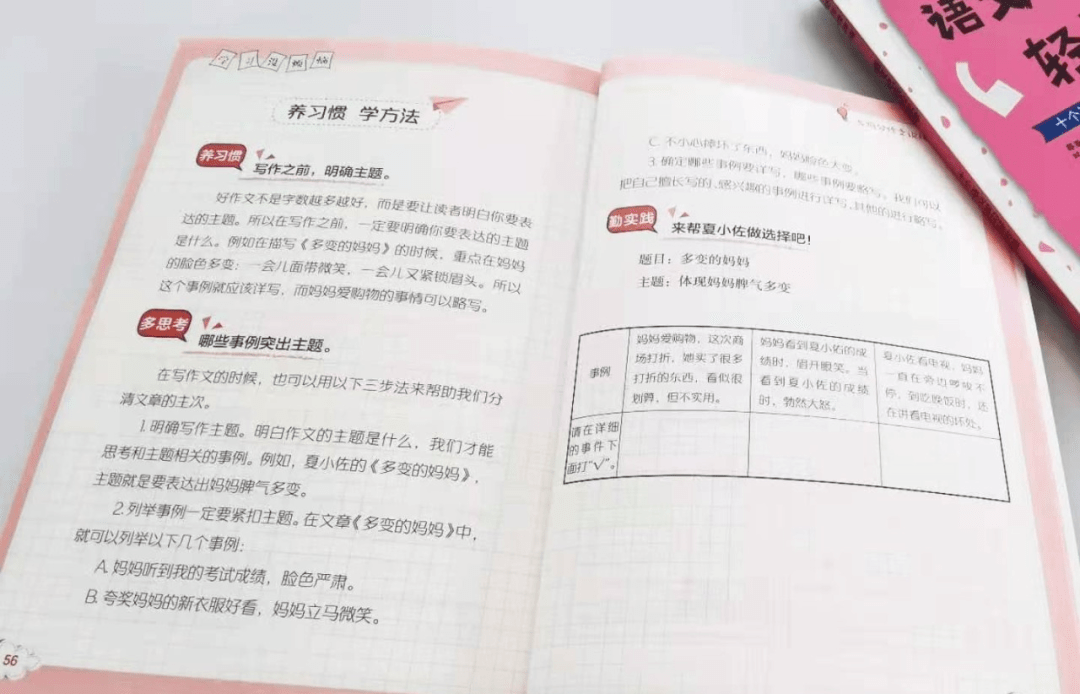 学习没烦恼
养习惯 学方法
养习惯
写作之前，明确主题。
好作文不是字数越多越好，而是要让读者明白你要表
达的主题。所以在写作之前，一定要明确你要表达的主题
是什么。例如在描写《多变的妈妈》的时候，重点在妈妈
的脸色多变：一会儿面带微笑，一会儿又紧锁眉头。所以
这个事例就应该详写，而妈妈爱购物的事情可以略写。
多思考
哪些事例突出主题。
在写作文的时候，也可以用以下三步法来帮助我们分
清文章的主次。
1.明确写作主题。明白作文的主题是什么，我们才能
思考和主题相关的事例。例如，夏小佐的《多变的妈妈》，
主题就是要表达出妈妈脾气多变。
2.列举事例一定要紧扣主题。在文章《多变的妈妈》中，
就可以列举以下几个事例：
A.妈妈听到我的考试成绩，脸色严肃。
B.夸奖妈妈的新衣服好看，妈妈立马微笑。
56
C.不小心摔坏了东西，妈妈脸色大变。
3.确定哪些事例要详写，哪些事例要略写。我们可以
把自己擅长写的、感兴趣的事例进行详写，其他的进行略写。
勤实践
来帮夏小佐做选择吧！
题目：多变的妈妈
主题：体现妈妈脾气多变
事例
妈妈爱购物，这次商
场打折，她买了很多
打折的东西，看似很
划算，但不实用。
妈妈看到夏小佑的成
绩时，眉开眼笑。当
看到夏小佐的成绩
时，勃然大怒。
夏小佐看电视，妈妈
一直在旁边啰唆不
停，到吃晚饭时，还
在讲看电视的坏处。
请在详细
的事件下
面打“√”。
语文
轻
十个